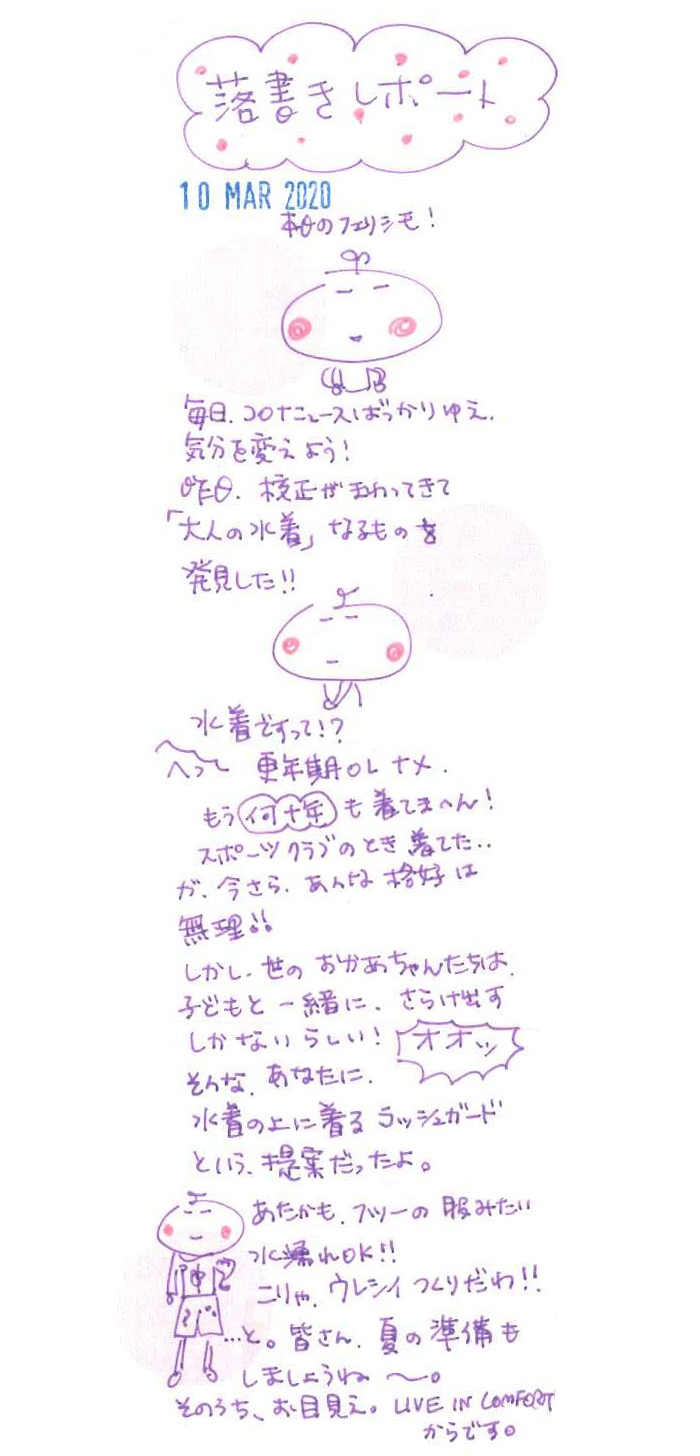 落書きレポート
10 MAR 2020
本日のフェリシモ!
毎日、コロナニュースばっかりゆえ、
気分を変えよう!
昨日、校正がまわってきて
「大人の水着」なるものを
発見した!!
水着ですって!?
へっ 更年期OLナメ、
もう何十年も着てまへん!
スポーツクラブのとき着てた..
が、今さら、あんな格好は
無理!!
しかし、世のおかあちゃんたちは、
子どもと一緒に、さらけ出す
しかないらしい!
オオッ
そんな、あなたに、
水着の上に着るラッシュガード
という、提案だったよ。
あたかも、フツーの服みたい
水濡れOK!!
こりゃ、ウレシイつくりだわ!!
...と。皆さん、夏の準備も
しましょうね〜。
そのうち、お目見え。LIVE IN COMFORT
からです。